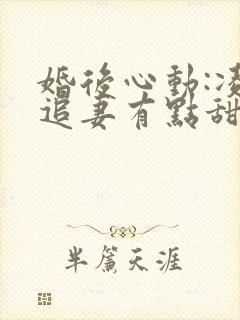 婚後心動:凌
追妻有點甜
半簾天涯